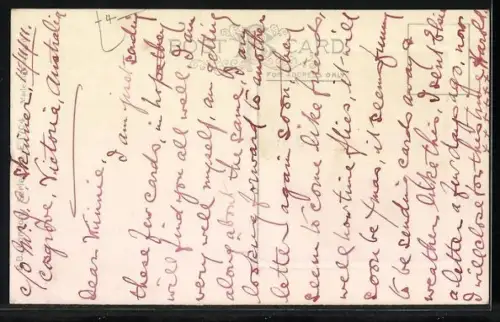 C/o Mr J.
Cosgrove, Victoria, Australia
Dear Minnie,
I am just sending
these few cards, in hope they
will find you all well, I am
very well myself, an getting
along about the same
looking forward to another
letter again soon, they
seem to come like friends,
well how time flies, it will
soon be Xmas, it seems funny
to be sending cards away
weather like this, I sent
a letter a few days ago, now
I will close for this Harold
POST CARD
FOR ADDRESS ONLY